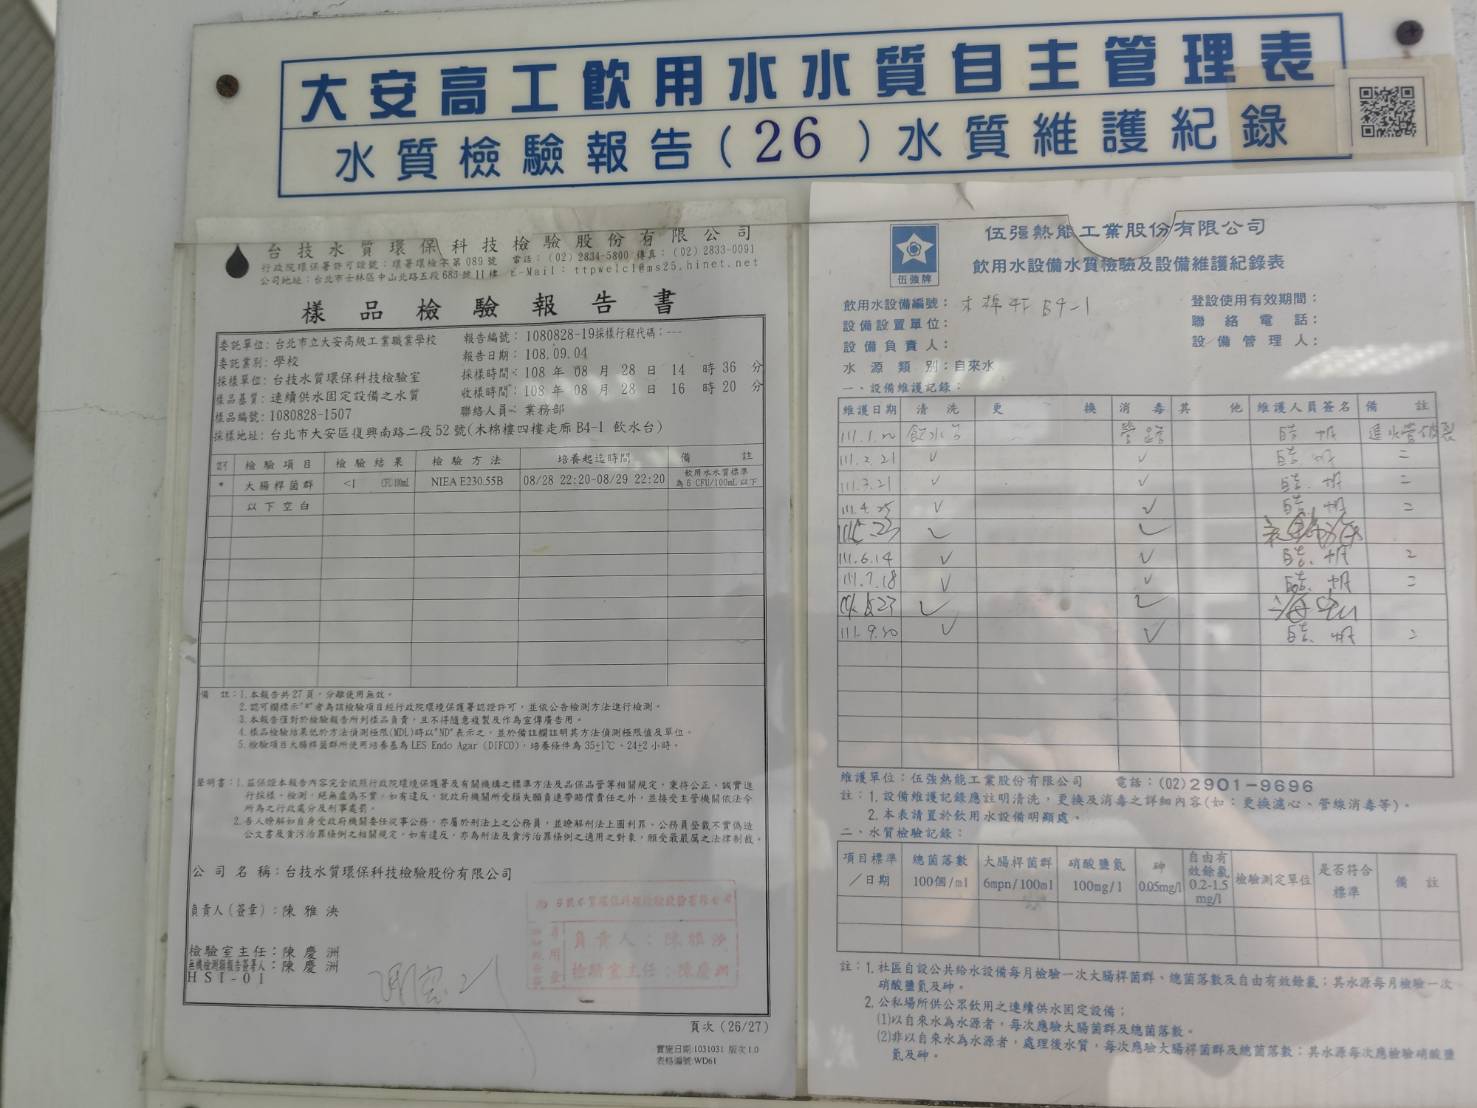 大安高工飲用水水質自主管理表
水質檢驗報告(26)水質維護紀錄
台技水質環保科技檢驗股份有限公司
行政院環保署許可證號:環署環檢字第089號 電話:(02)2834-5800 傳真:(02)2833-0091
公司地址:台北市士林區中山北路五段683號11樓 E-Mail:ttpwelcl@ms25.hinet.net
樣品檢驗報告書
委託單位:台北市立大安高級工業職業學校
委託業別:學校
採樣單位:台技水質環保科技檢驗室
樣品基質:連續供水固定設備之水質
樣品編號:1080828-1507
報告編號:1080828-19採樣行程代碼:---
報告日期:108.09.04
採樣時間:108年08月28日14時36分
收樣時間:108年08月28日16時20分
聯絡人員:業務部
採樣地址:台北市大安區復興南路二段52號(木棉樓四樓走廊B4-1飲水台)
認可 檢驗項目 檢驗結果 檢驗方法 培養起迄時間 備註
* 大腸桿菌群 <1 CFU/100mL NIEA E230.55B 08/28 22:20-08/29 22:20 飲用水水質標準為6 CFU/100mL以下
以下空白
備註:1.本報告共27頁,分離使用無效。
2.認可欄標示"*"者為該檢驗項目經行政院環境保護署認證許可,並依公告檢測方法進行檢測。
3.本報告僅對於檢驗報告所列樣品負責,且不得隨意複製及作為宣傳廣告用。
4.樣品檢驗結果低於方法偵測極限(MDL)時以"ND"表示之,並於備註欄註明其方法偵測極限值及單位。
5.檢驗項目大腸桿菌群所使用培養基為LES Endo Agar (DIFCO),培養條件為35±1℃、24±2小時。
聲明書:1.茲保證本報告內容完全依照行政院環境保護署及有關機構之標準方法及品保品管等相關規定,秉持公正、誠實進
行採樣、檢測,絕無虛偽不實,如有違反,就政府機關所受損失願負連帶賠償責任之外,並接受主管機關依法令
所為之行政處分及刑事處罰。
2.吾人瞭解如自身受政府機關委任從事公務,亦屬於刑法上之公務員,並瞭解刑法上圖利罪、公務員登載不實偽造
公文書及貪污治罪條例之相關規定,如有違反,亦為刑法及貪污治罪條例之適用之對象,願受最嚴厲之法律制裁。
公司名稱:台技水質環保科技檢驗股份有限公司
負責人(簽章):陳雅泱
檢驗室主任:陳慶洲
無機檢測類報告簽署人:陳慶洲
HSI-01
負責人:陳雅泱
檢驗室主任:陳慶洲
頁次(26/27)
實施日期:1031031 版次1.0
表格編號:WD61
伍強牌
伍強熱能工業股份有限公司
飲用水設備水質檢驗及設備維護紀錄表
飲用水設備編號:木棉4F B4-1
設備設置單位:
設備負責人:
水源類別:自來水
登設使用有效期間:
聯絡電話:
設備管理人:
一、設備維護記錄:
維護日期 清洗 更換 消毒 其他 維護人員簽名 備註
111.1.20 飲水台 管路 進水管破裂
111.2.21 ✓ ✓ =
111.3.21 ✓ ✓ =
111.4.25 ✓ ✓ =
111.5.23 ✓ ✓
111.6.14 ✓ ✓ =
111.7.18 ✓ ✓ =
111.8.23 ✓ ✓
111.9.20 ✓ ✓ =
維護單位:伍強熱能工業股份有限公司 電話:(02)2901-9696
註:1.設備維護記錄應註明清洗,更換及消毒之詳細內容(如:更換濾心、管線消毒等)。
2.本表請置於飲用水設備明顯處。
二、水質檢驗記錄:
項目標準/日期 總菌落數100個/ml 大腸桿菌群6mpn/100ml 硝酸鹽氮100mg/l 砷0.05mg/l 自由有效餘氯0.2-1.5mg/l 檢驗測定單位 是否符合標準 備註
註:1.社區自設公共給水設備每月檢驗一次大腸桿菌群、總菌落數及自由有效餘氯;其水源每月檢驗一次
硝酸鹽氮及砷。
2.公私場所供公眾飲用之連續供水固定設備:
(1)以自來水為水源者,每次應驗大腸菌群及總菌落數。
(2)非以自來水為水源者,處理後水質,每次應驗大腸桿菌群及總菌落數;其水源每次應檢驗硝酸鹽
氮及砷。